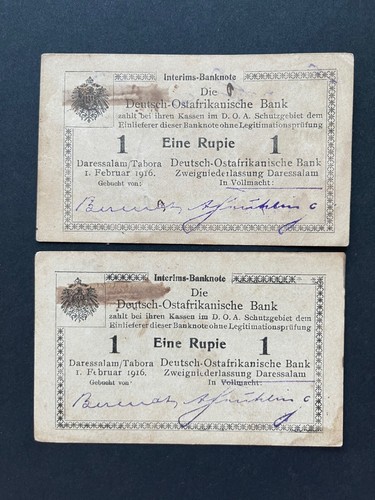 Interims-Banknote
Die
Deutsch-Ostafrikanische Bank
zahlt bei ihren Kassen im D. O. A. Schutzgebiet dem
Einlieferer dieser Banknote ohne Legitimationsprüfung
1 Eine Rupie 1
Daressalam/Tabora Deutsch-Ostafrikanische Bank
1. Februar 1916. Zweigniederlassung Daressalam
Gebucht von: In Vollmacht:
Interims-Banknote
Die
Deutsch-Ostafrikanische Bank
zahlt bei ihren Kassen im D. O. A. Schutzgebiet dem
Einlieferer dieser Banknote ohne Legitimationsprüfung
1 Eine Rupie 1
Daressalam/Tabora Deutsch-Ostafrikanische Bank
1. Februar 1916. Zweigniederlassung Daressalam
Gebucht von: In Vollmacht: